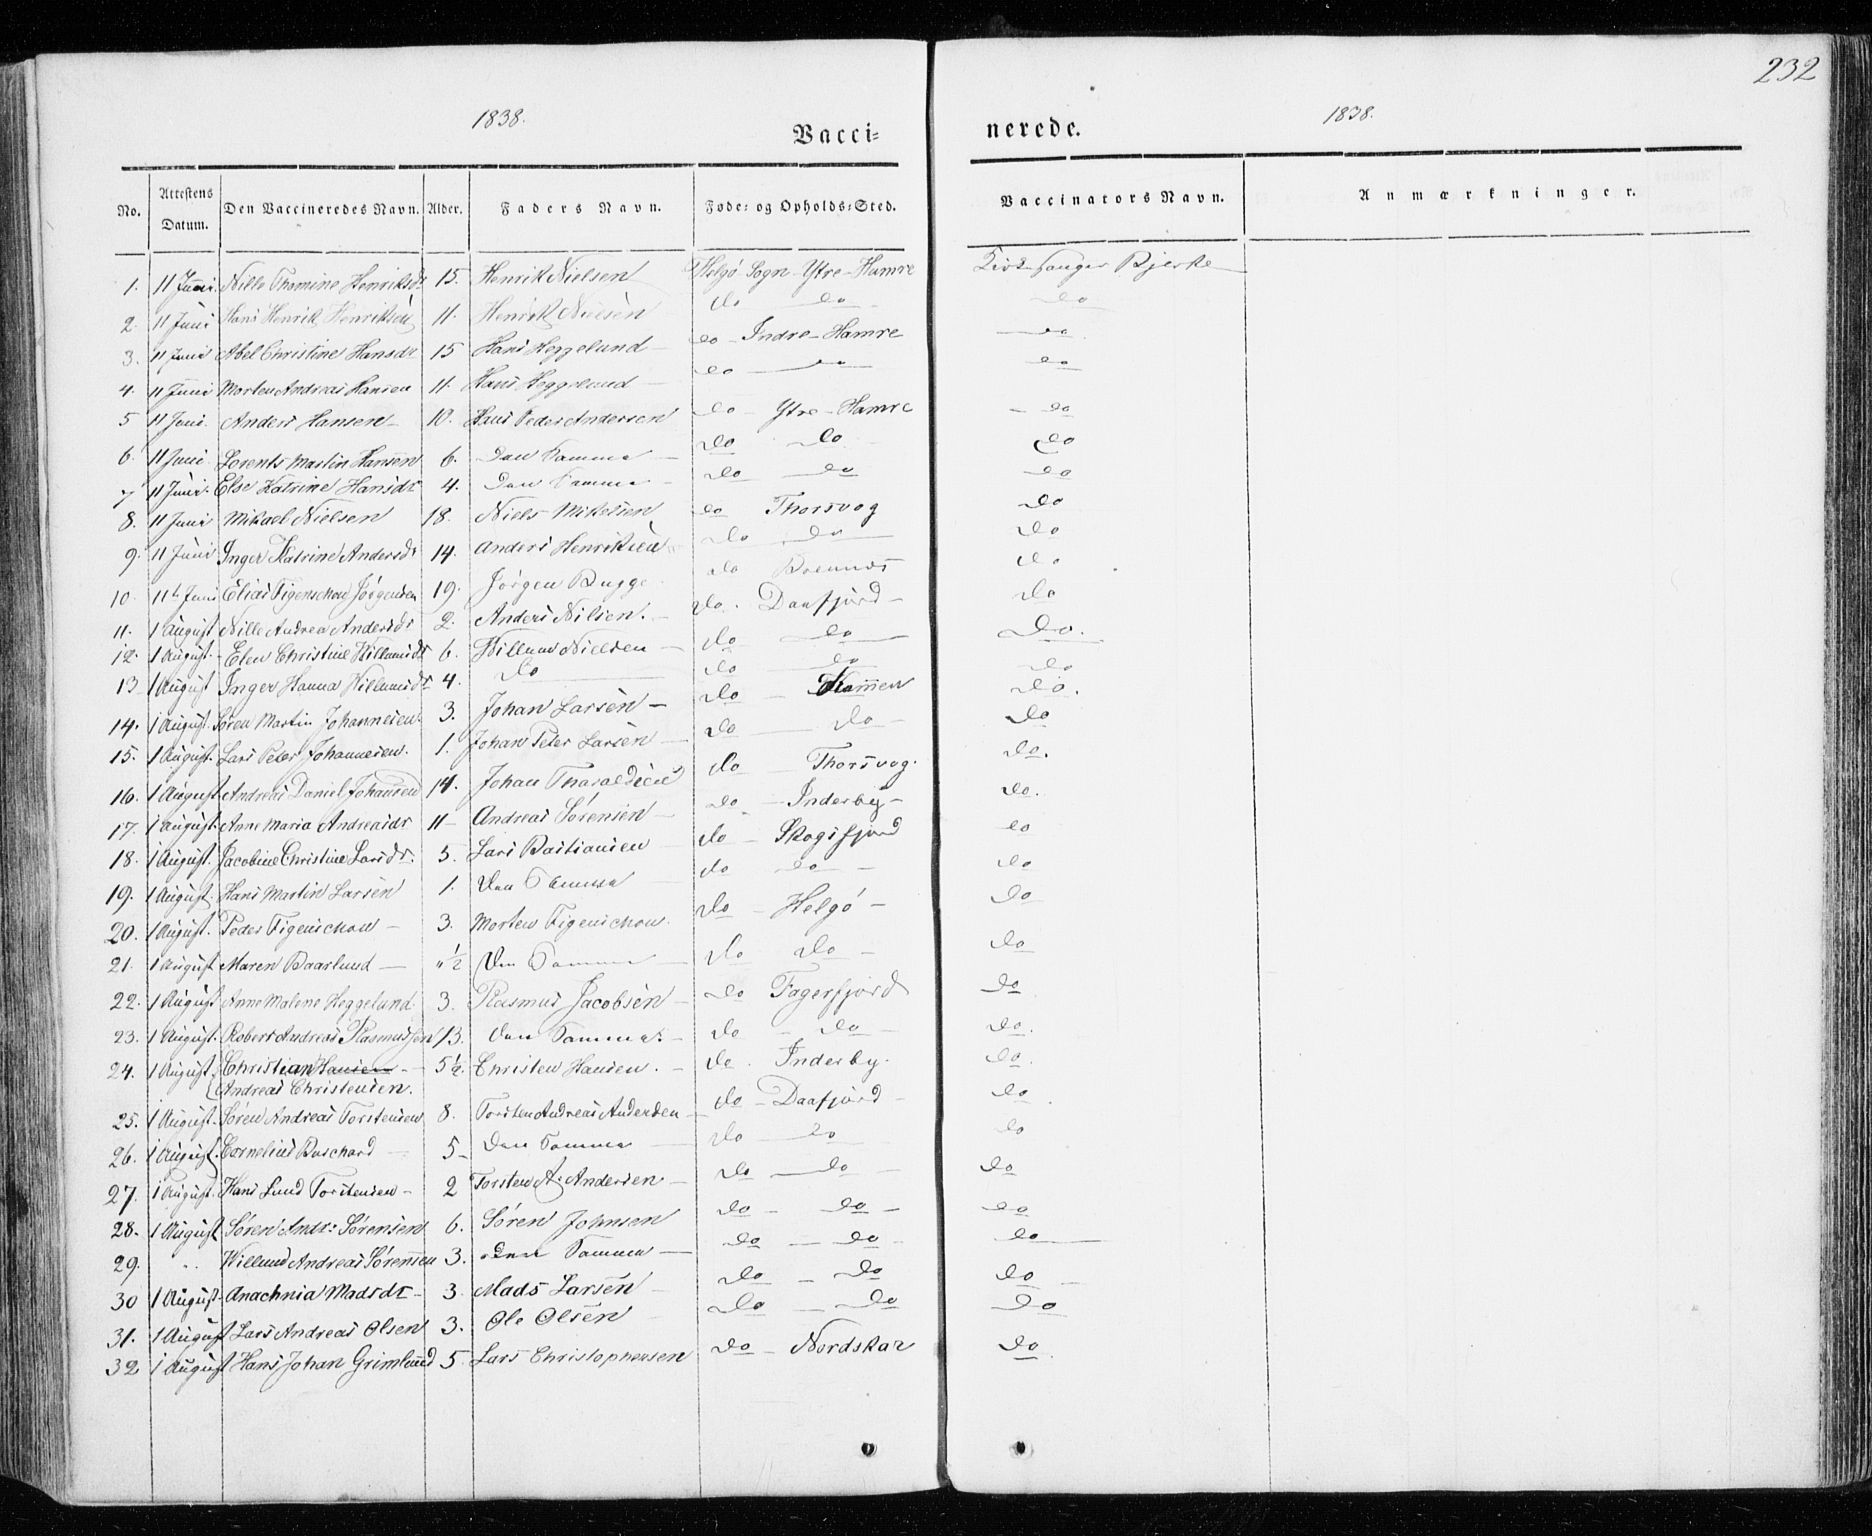 232
1838. 1838.
Vacci= nerede.
No. Attestens Datum. Den Vaccineredes Navn. Alder. Faders Navn. Føde= og Opholds=Sted. Vaccinators Navn. Anmærkninger.
1. 11 Juni Nille Thomine Henriksdr 15. Henrik Nielsen Helgö Sogn Ytre-Hamre Kirkesanger Bjerke
2. 11 Juni Hans Henrik Henriksen 11. Henrik Nielsen do do do
3. 11 Juni Abel Christine Hansdr 15 Hans Heggelund do - Indre-Hamre do
4. 11 Juni Morten Andreas Hansen 11. Hans Heggelund do do do
5 11 Juni. Anders Hansen 10. Hans Peder Andersen do - Ytre-Hamre do
6. 11 Juni Lorents Martin Hansen 6. Den Samme do do do
7 11 Juni. Else Katrine Hansdr 4. Den Samme do do do
8. 11 Juni Mikael Nielsen 18. Niels Mikelsen do Thorsvog do
9. 11 Juni Inger Katrine Andersdr 14. Anders Henriksen do do do
10. 11 Juni Elias Figenschou Jörgensen 19. Jörgen Bugge do do
11. 1 August Nille Andrea Andersdr 2. Anders Nilsen. do. Daafjord do
12. 1 August. Elen Christine Hillumsdr 6. Hillum Nielsen do do do.
13 1 August Inger Hanna Hillumsdr 4. do do do do
14. 1 August. Sören Martin Johannesen. 3. Johan Larsen do Hamen do.
15. 1 August. Lars Peter Johannesen. 1. Johan Peter Larsen do do do
16. 1 August Andreas Daniel Johansen 14. Johan Tharaldsen do Thorsvog. do.
17. 1 August. Anne Maria Andreasdr 11 Andreas Sörensen do - Inderby do.
18. 1 August. Jacobine Christine Larsdr. 3. Lars Bastiansen do - Skogsfjord do
19. 1 August. Hans Martin Larsen 1. Den Samme do do do
20. 1 August. Peder Figenschou 3. Morten Figenschou. do - Helgö do
21. 1 August Maren Baarlund " 1/2 Den Samme do do do
22. 1 August Anne Malene Heggelund 3. Rasmus Jacobsen do Fagerfjord do
23. 1 August. Robert Andreas Rasmussen 13. Den Samme. do - do do.
24. 1 August. Christian Hansen 5 1/2. Christen Hansen. do. Inderby. do.
Andreas Christensen.
25. 1 August. Sören Andreas Torstensen 8. Torsten Andreas Andersen do - Daafjord do
26. 1 August. Cornelius Buschard 5 Den Samme do do do
27. 1 August. Hans Lund Torstensen 2 Torsten A. Andersen do do do
28. 1 August Sören Andr: Sörensen 6. Sören Johnsen do - do do
29. " Willum Andreas Sörensen 3. Den Samme do - do do
30 1 August. Anachnia Madsdr 3. Mads Larsen do - do do
31. 1 August Lars Andreas Olsen 3. Ole Olsen do - do do
32 1 August Hans Johan Grimlund 5. Lars Christophersen do - Nordskar do